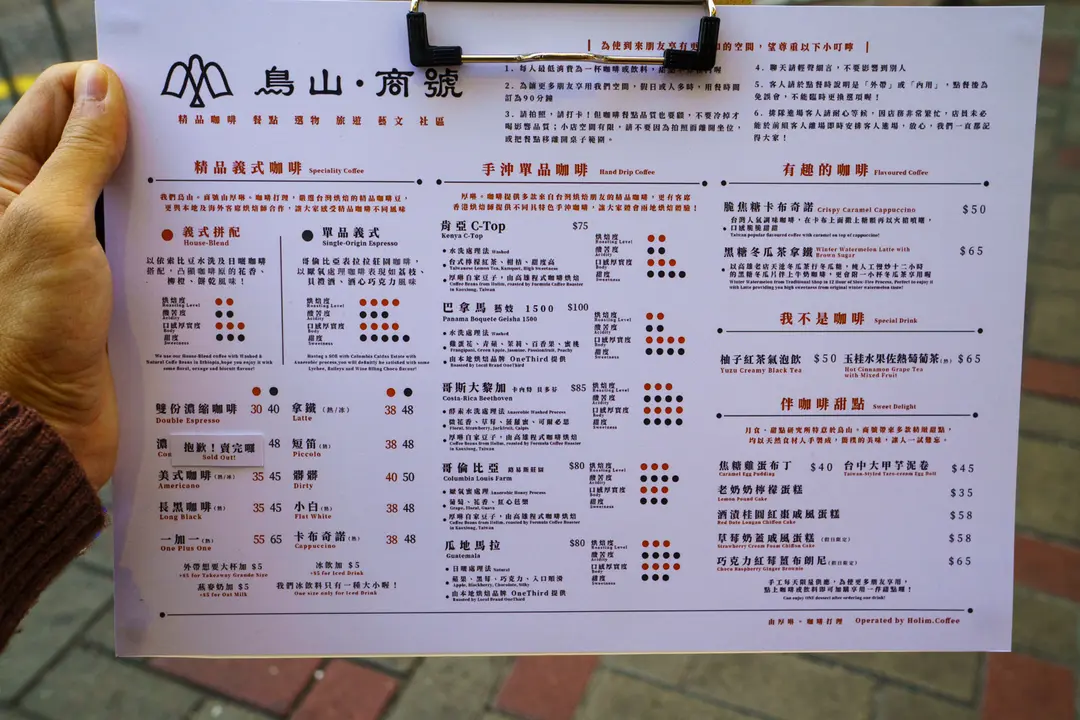 鳥山·商號
精品咖啡 餐點 選物 旅遊 藝文 社區
為使到來朋友享有更
的空間，望尊重以下小叮嚀
1. 每人最低消費為一杯咖啡或飲料，
2. 為讓更多朋友享用我們空間，假日或人多時，用餐時間
訂為90分鐘
3. 請拍照，請打卡！但咖啡餐點品質也要顧，不要冷掉才
喝影響品質；小店空間有限，請不要因為拍照而離開座位，
或把餐點移離開桌子範圍。
4. 聊天請輕聲細言，不要影響到別人
5. 客人請於點餐時說明是「外帶」或「內用」，點餐後為
免誤會，不能臨時更換選項喔！
6. 排隊進場客人請耐心等候，因店務非常繁忙，店員未必
能於前組客人離場即時安排客人進場，放心，我們一直都記
得大家！
精品義式咖啡 Speciality Coffee
我們鳥山。商號由厚琳。咖啡打理，嚴選台灣烘焙的精品咖啡豆，
更與本地及海外客席烘焙師合作，讓大家感受精品咖啡不同風味
義式拼配
House-Blend
以依索比亞水洗及日曬咖啡
搭配，凸顯咖啡原的花香、
柳橙、餅乾風味！
烘焙度
Roasting Level
酸苦度
Acidity
口感厚實度
Body
甜度
Sweetness
We use our House-Blend coffee with Washed &
Natural Coffe Beans in Ethiopia, hope you enjoy it with
some floral, orange and biscuit flavour!
單品義式
Single-Origin Espresso
哥倫比亞表拉拉莊園咖啡，
以厭氧處理咖啡表現如荔枝、
貝禮酒、酒心巧克力風味
烘焙度
Roasting Level
酸苦度
Acidity
口感厚實度
Body
甜度
Sweetness
Having a SOE with Colombia Caldas Estate with
Anaerobic process,you will definitly be satisfied with some
Lychee, Baileys and Wine filling Choco flavour!
雙份濃縮咖啡 30 40
Double Espresso
濃
抱歉！賣完囉
Sold Out!
48
美式咖啡 (熱/冰) 35 45
Americano
長黑咖啡 (熱) 35 45
Long Black
一加一 (熱) 55 65
One Plus One
拿鐵 (熱/冰) 38 48
Latte
短笛 (熱) 38 48
Piccolo
髒髒 40 50
Dirty
小白 (熱) 38 48
Flat White
卡布奇諾 (熱) 38 48
Cappuccino
外帶想要大杯加 $5
+$5 for Takeaway Grande Size
燕麥奶加 $5
+$5 for Oat Milk
冰飲加 $5
+$5 for Iced Drink
我們冰飲料只有一種大小喔！
One size only for Iced Drink
手沖單品咖啡 Hand Drip Coffee
厚琳。咖啡提供多款來自台灣烘焙朋友的精品咖啡，更有客席
香港烘焙師提供不同具特色手沖咖啡，讓大家體會兩地烘焙體驗！
肯亞 C-Top $75
Kenya C-Top
水洗處理法 Washed
台式檸檬紅茶、柑桔、甜度高
Taiwanese Lemon Tea, Kumquat, High Sweetness
厚琳自家豆子，由高雄程式咖啡烘焙
Coffee Beans from Holim, roasted by Formula Coffee Roaster
in Kaoxiung, Taiwan
烘焙度
Roasting Level
酸苦度
Acidity
口感厚實度
Body
甜度
Sweetness
巴拿馬 藝妓 1500 $100
Panama Boquete Geisha 1500
水洗處理法 Washed
雞蛋花、青蘋、茉莉、百香果、蜜桃
Frangipani, Green Apple, Jasmine, Passionfruit, Peachy
由本地烘焙品牌 OneThird 提供
Roasted by Local Brand OneThird
烘焙度
Roasting Level
酸苦度
Acidity
口感厚實度
Body
甜度
Sweetness
哥斯大黎加 卡內特 貝多芬 $85
Costa-Rica Beethoven
酵素水洗處理法 Anaerobic Washed Process
微花香、草莓、菠蘿蜜、可爾必思
Floral, Strawberry, Jackfruit, Calpis
厚琳自家豆子，由高雄程式咖啡烘焙
Coffee Beans from Holim, roasted by Formula Coffee Roaster
in Kaoxiung, Taiwan
烘焙度
Roasting Level
酸苦度
Acidity
口感厚實度
Body
甜度
Sweetness
哥倫比亞 路易斯莊園 $80
Columbia Louis Farm
厭氧蜜處理 Anaerobic Honey Process
葡萄、花香、紅心芭樂
Grape, Floral, Guava
厚琳自家豆子，由高雄程式咖啡烘焙
Coffee Beans from Holim, roasted by Formula Coffee Roaster
in Kaoxiung, Taiwan
烘焙度
Roasting Level
酸苦度
Acidity
口感厚實度
Body
甜度
Sweetness
瓜地馬拉 $80
Guatemala
日曬處理 Natural
蘋果、黑莓、巧克力、入口順滑
Apple, Blackberry, Chocolate, Silky
由本地烘焙品牌 OneThird 提供
Roasted by Local Brand OneThird
烘焙度
Roasting Level
酸苦度
Acidity
口感厚實度
Body
甜度
Sweetness
有趣的咖啡 Flavoured Coffee
脆焦糖卡布奇諾 Crispy Caramel Cappuccino $50
台灣人氣調味咖啡，在卡布上面撒上糖顆再以火焰噴曬，
口感脆脆甜甜
Taiwan popular flavoured coffee with caramel on top of cappuccino!
黑糖冬瓜茶拿鐵 Winter Watermelon Latte with $65
Brown Sugar
以高雄老店天達冬瓜茶行冬瓜糖，純人工慢炒十二小時
的黑糖冬瓜片伴上牛奶咖啡，更會附一小杯冬瓜茶享用喔
Winter Watermelon from Traditional Shop in 12 Hour of Slow-Fire Process, Perfect to enjoy it
with Latte providing you high sweetness from original winter watermelon taste!
我不是咖啡 Special Drink
柚子紅茶氣泡飲 $50
Yuzu Creamy Black Tea
玉桂水果佐熱葡萄茶 (熱) $65
Hot Cinnamon Grape Tea
with Mixed Fruit
伴咖啡甜點 Sweet Delight
月食。甜點研究所特意於鳥山。商號帶來多款精緻甜點，
均以天然食材人手製成，簡樸的美味，讓人一試難忘。
焦糖雞蛋布丁 $40
Caramel Egg Pudding
台中大甲芋泥卷 $45
Taiwan-Styled Taro-cream Egg Roll
老奶奶檸檬蛋糕 $35
Lemon Pound Cake
酒漬桂圓紅棗戚風蛋糕 $58
Red Date Longan Chiffon Cake
草莓奶蓋戚風蛋糕 (假日限定) $58
Strawberry Cream Foam Chiffon Cake
巧克力紅莓薑布朗尼 (假日限定) $65
Choco Raspberry Ginger Brownie
手工每天限量供應，為使更多朋友享用，
點上咖啡或飲料即可加購享用一件甜點囉！
Can enjoy ONE dessert after ordering one drink!
由厚琳。咖啡打理 Operated by Holim.Coffee